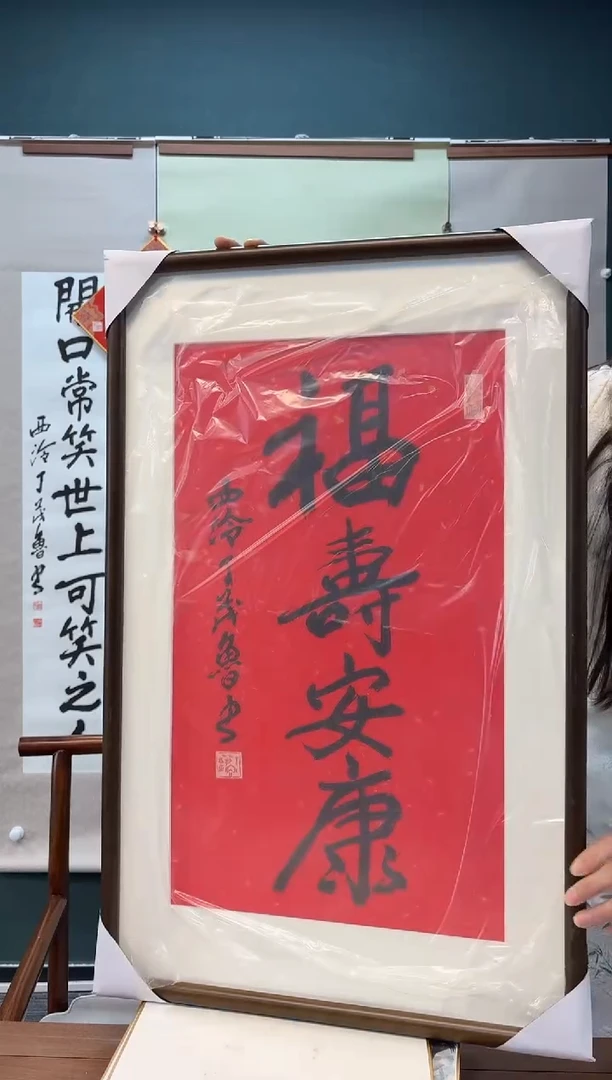 福壽安康
西泠丁茂魯书
開口常笑世上可笑之
西泠丁茂魯书